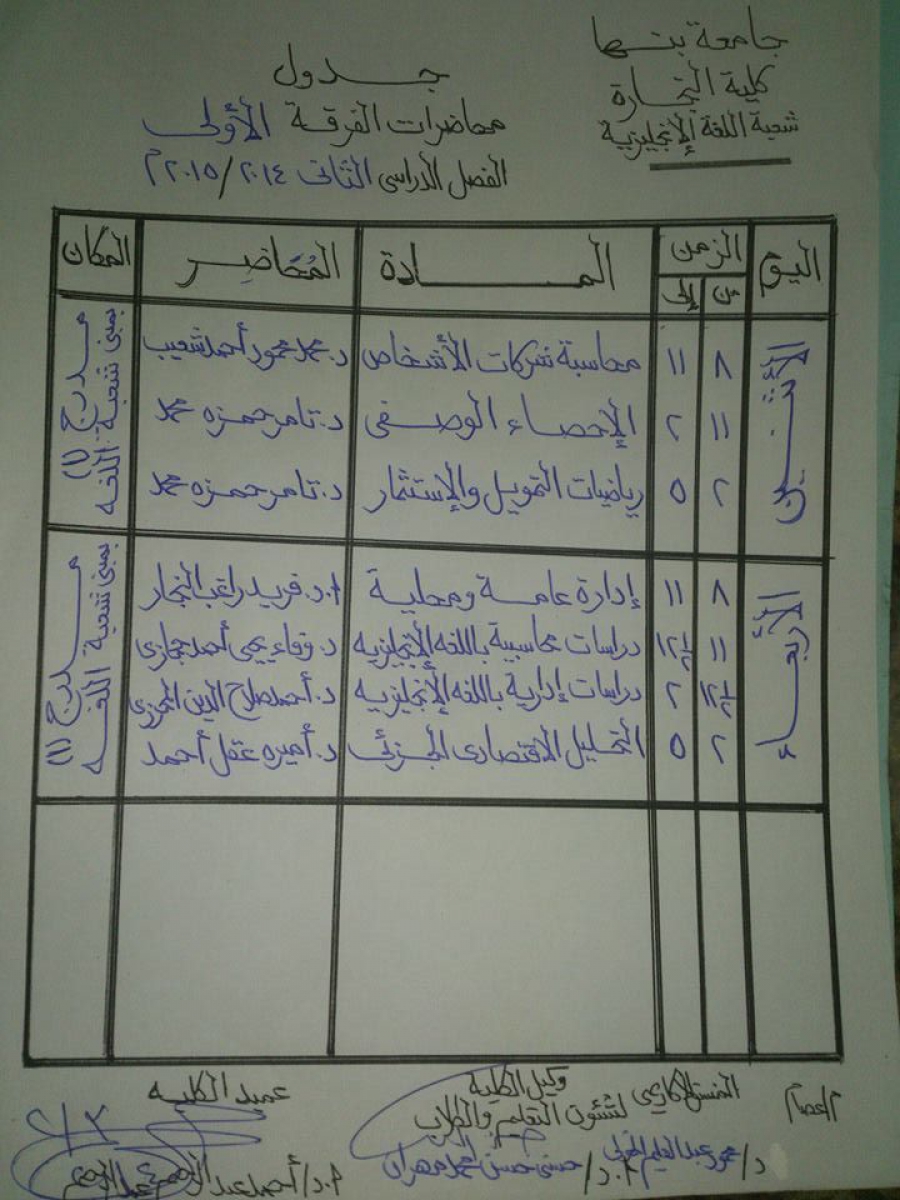 جامعة بنها
كلية التجارة
شعبة اللغة الإنجليزية
جدول
محاضرات الفرقة الأولى
الفصل الدراسى الثانى ٢٠١٤/٢٠١٥م
اليوم الزمن المادة المُحَاضِر المكان
من إلى
الأثنين
٨ ١١ محاسبة شركات الأشخاص د. محمد محمود أحمد شعيب
١١ ٢ الإحصاء الوصفى د. تامر حمزه محمد
٢ ٥ رياضيات التمويل والإستثمار د. تامر حمزه محمد
مدرج (١)
بمبنى شعبة اللغه
الأربعاء
٨ ١١ إدارة عامة ومحلية أ.د. فريد راغب النجار
١١ ١٢½ دراسات محاسبية باللغه الإنجليزيه د. وفاء يحيى أحمد حجازى
١٢½ ٢ دراسات إدارية باللغه الإنجليزيه د. أحمد صلاح الدين
٢ ٥ التحليل الاقتصادى الجزئى د. أميره عقل أحمد
مدرج (١)
بمبنى شعبة اللغه
وكيل الكلية
لشئون التعليم والطلاب
عميد الكليه
د/ محمود عبد العليم
أ.د/ حسنى حسن محمد مهران
أ.د/ أحمد عبد الرحيم